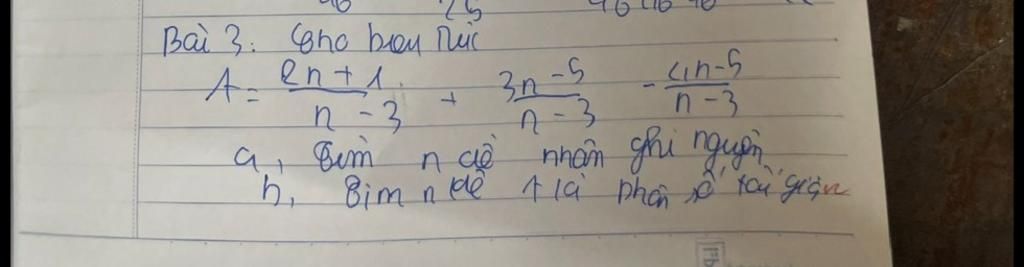 Bài 3: Cho biểu thức
A = \frac{2n+1}{n-3} + \frac{3n-5}{n-3} - \frac{4n-5}{n-3}
a, Tìm n để nhân ghi nguyên
b, Tìm n để A là phân số tối giản